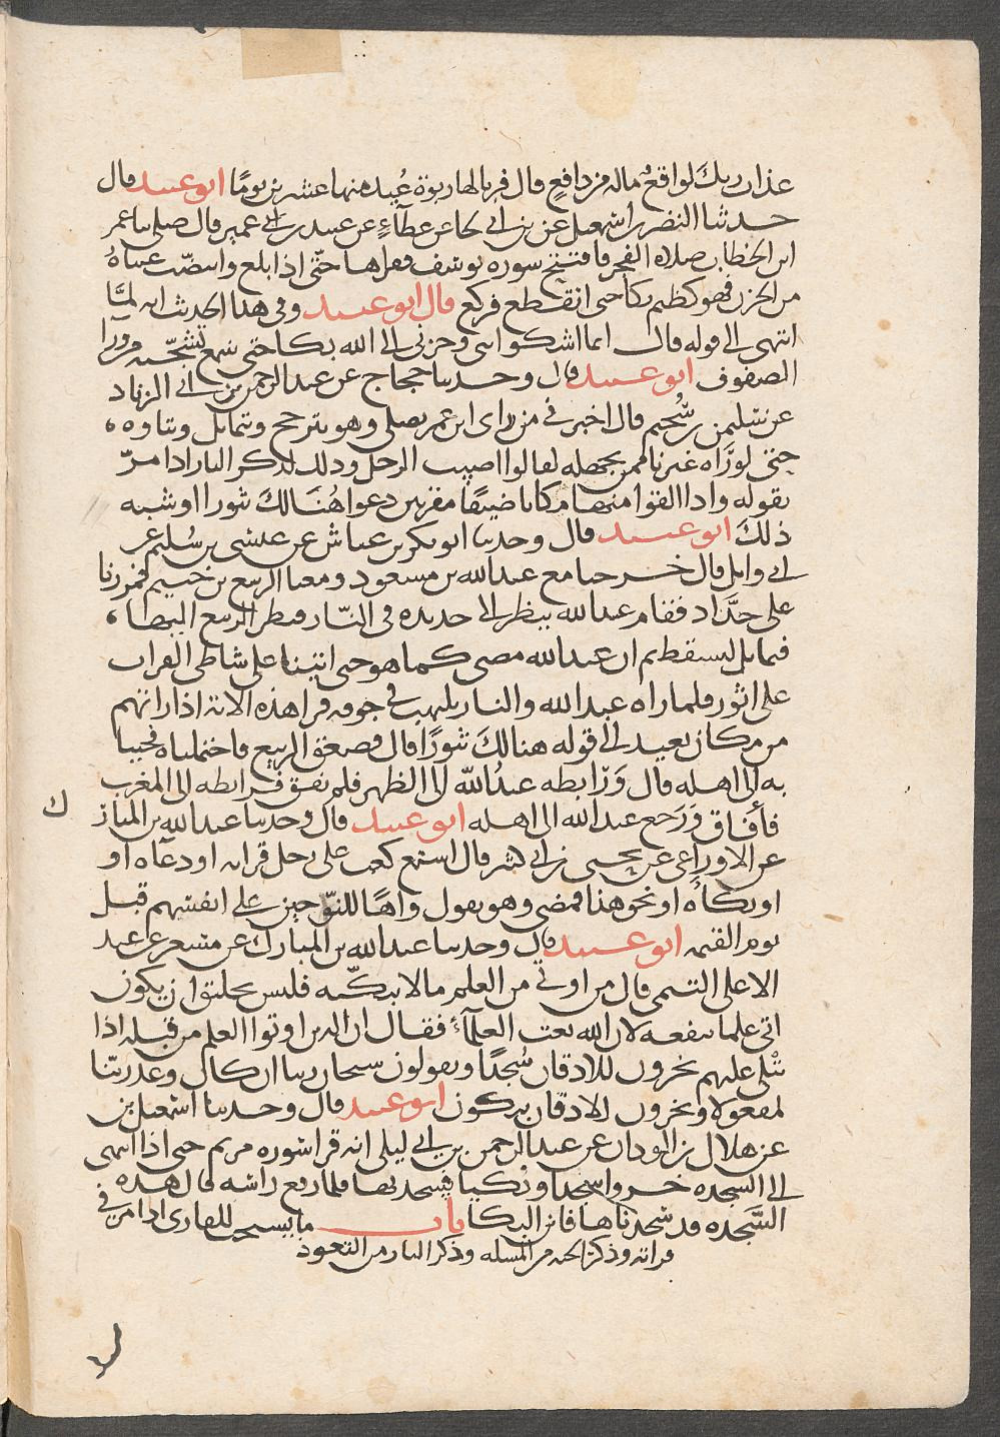 عذاب ربك لواقع ماله من دافع قال فربا لها ربوة عُيد منها عشرين يومًا ابو عبيد قال
حدثنا النضر بن اسمعيل عن بن ابى ليلى عن عطاء عن عبيد بن عمير قال صلى بنا عمر
ابن الخطاب صلاة الفجر فافتتح سورة يوسف فقراها حتى اذا بلغ وابيضت عيناهُ
من الحزن فهو كظيم بكا حتى انقطع فركع قال ابو عبيد وفى هذا الحديث انه لمّا
انتهى الى قوله قال انما اشكو ابثى وحزنى الى الله بكا حتى سمع نشيجه من ورا
الصفوف ابو عبيد قال وحدثنا حجاج عن عبد الرحمن بن ابى الزناد
عن سليمن بن سُحيم قال اخبرنى من راى ابن عمر يصلى وهو يترجح ويتمايل ويتاوه
حتى لو رَاه غيرنا ممن يجهله لقالوا اصيب الرجل وذلك لذكر النار اذا مرّ
بقوله واذا القوا منها مكانا ضيقًا مقرنين دعوا هُنَالكَ ثبورا او شبه
ذلكَ ابو عبيد قال وحدثنا ابو بكر بن عياش عن عيسى بن سُليم عن
ابى وايل قال خرجنا مع عبد الله بن مسعود ومعنا الربيع بن خثيم فمررنا
على حدَّاد فقام عبد الله ينظر الى حديده فى النّار فنظر الربيع اليها
فتمايل ليسقط ثم ان عبد الله مضى كما هو حتى اتينا على شاطى الفرات
على اتور فلما راه عبد الله والنار يلهب فى جوفه قرا هذه الاية اذا راتهم
من مكان بعيد الى قوله هنالكَ ثبورًا قال فصعق الربيع فاحتملناه فجينا
به الى اهله قال وَرَابطه عبدُ الله الى الظهر فلم يفق فرابطه الى المغرب
فأفاق وَرَجع عبد الله الى اهله ابو عبيد قال وحدثنا عبد الله بن المبارك
عن الاوزاعى عن يحيى بن ابى كثير قال استمع كعب على رجل قرانه او دعآه او
او بكاُه او نحو هذا فمضى وهو يقول واهًا للنوّاحين على انفسهم قبل
يوم القيمه ابو عبيد قال وحدثنا عبد الله بن المبارك عن مسعر عن عبد
الاعلى التيمى قال من اوتى من العلم مالا يبكّيه فليس بخليق ان يكون
اتى علما ينفعه لان الله نعت العلمآء فقال ان الذين اوتوا العلم من قبله اذا
تتْلى عليهم يخرون للاذقان سُجدًا ويقولون سبحان ربنا ان كان وعد ربّنا
لمفعولا ويخرون للاذقان يبكون ابو عبيد قال وحدثنا اسمعيل بن
عن هلال بن الودان عن عبد الرحمن بن ابى ليلى انه قرا سورة مريم حتى اذا انتهى
الى السجده خروا سجدا وبكيا فسجد بها فلما رفع راسه قال هذه
السَّجده قد سجدناها فاين البكا باب ما يستحب للقارى اذا مر فى
قراته وذكر الجنه من المسله وذكر النار من التعوذ